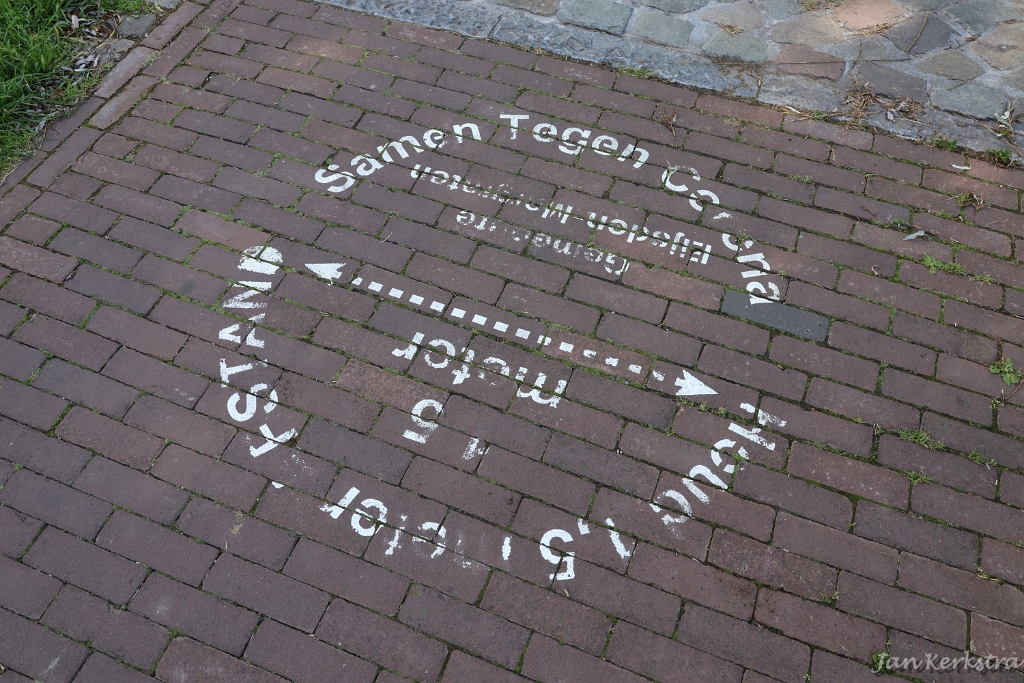 Samen Tegen Corona
Houd 1,5 meter AFSTAND
1,5
meter
Gemeente
Eijsden-Margraten
Jan Kerkstra